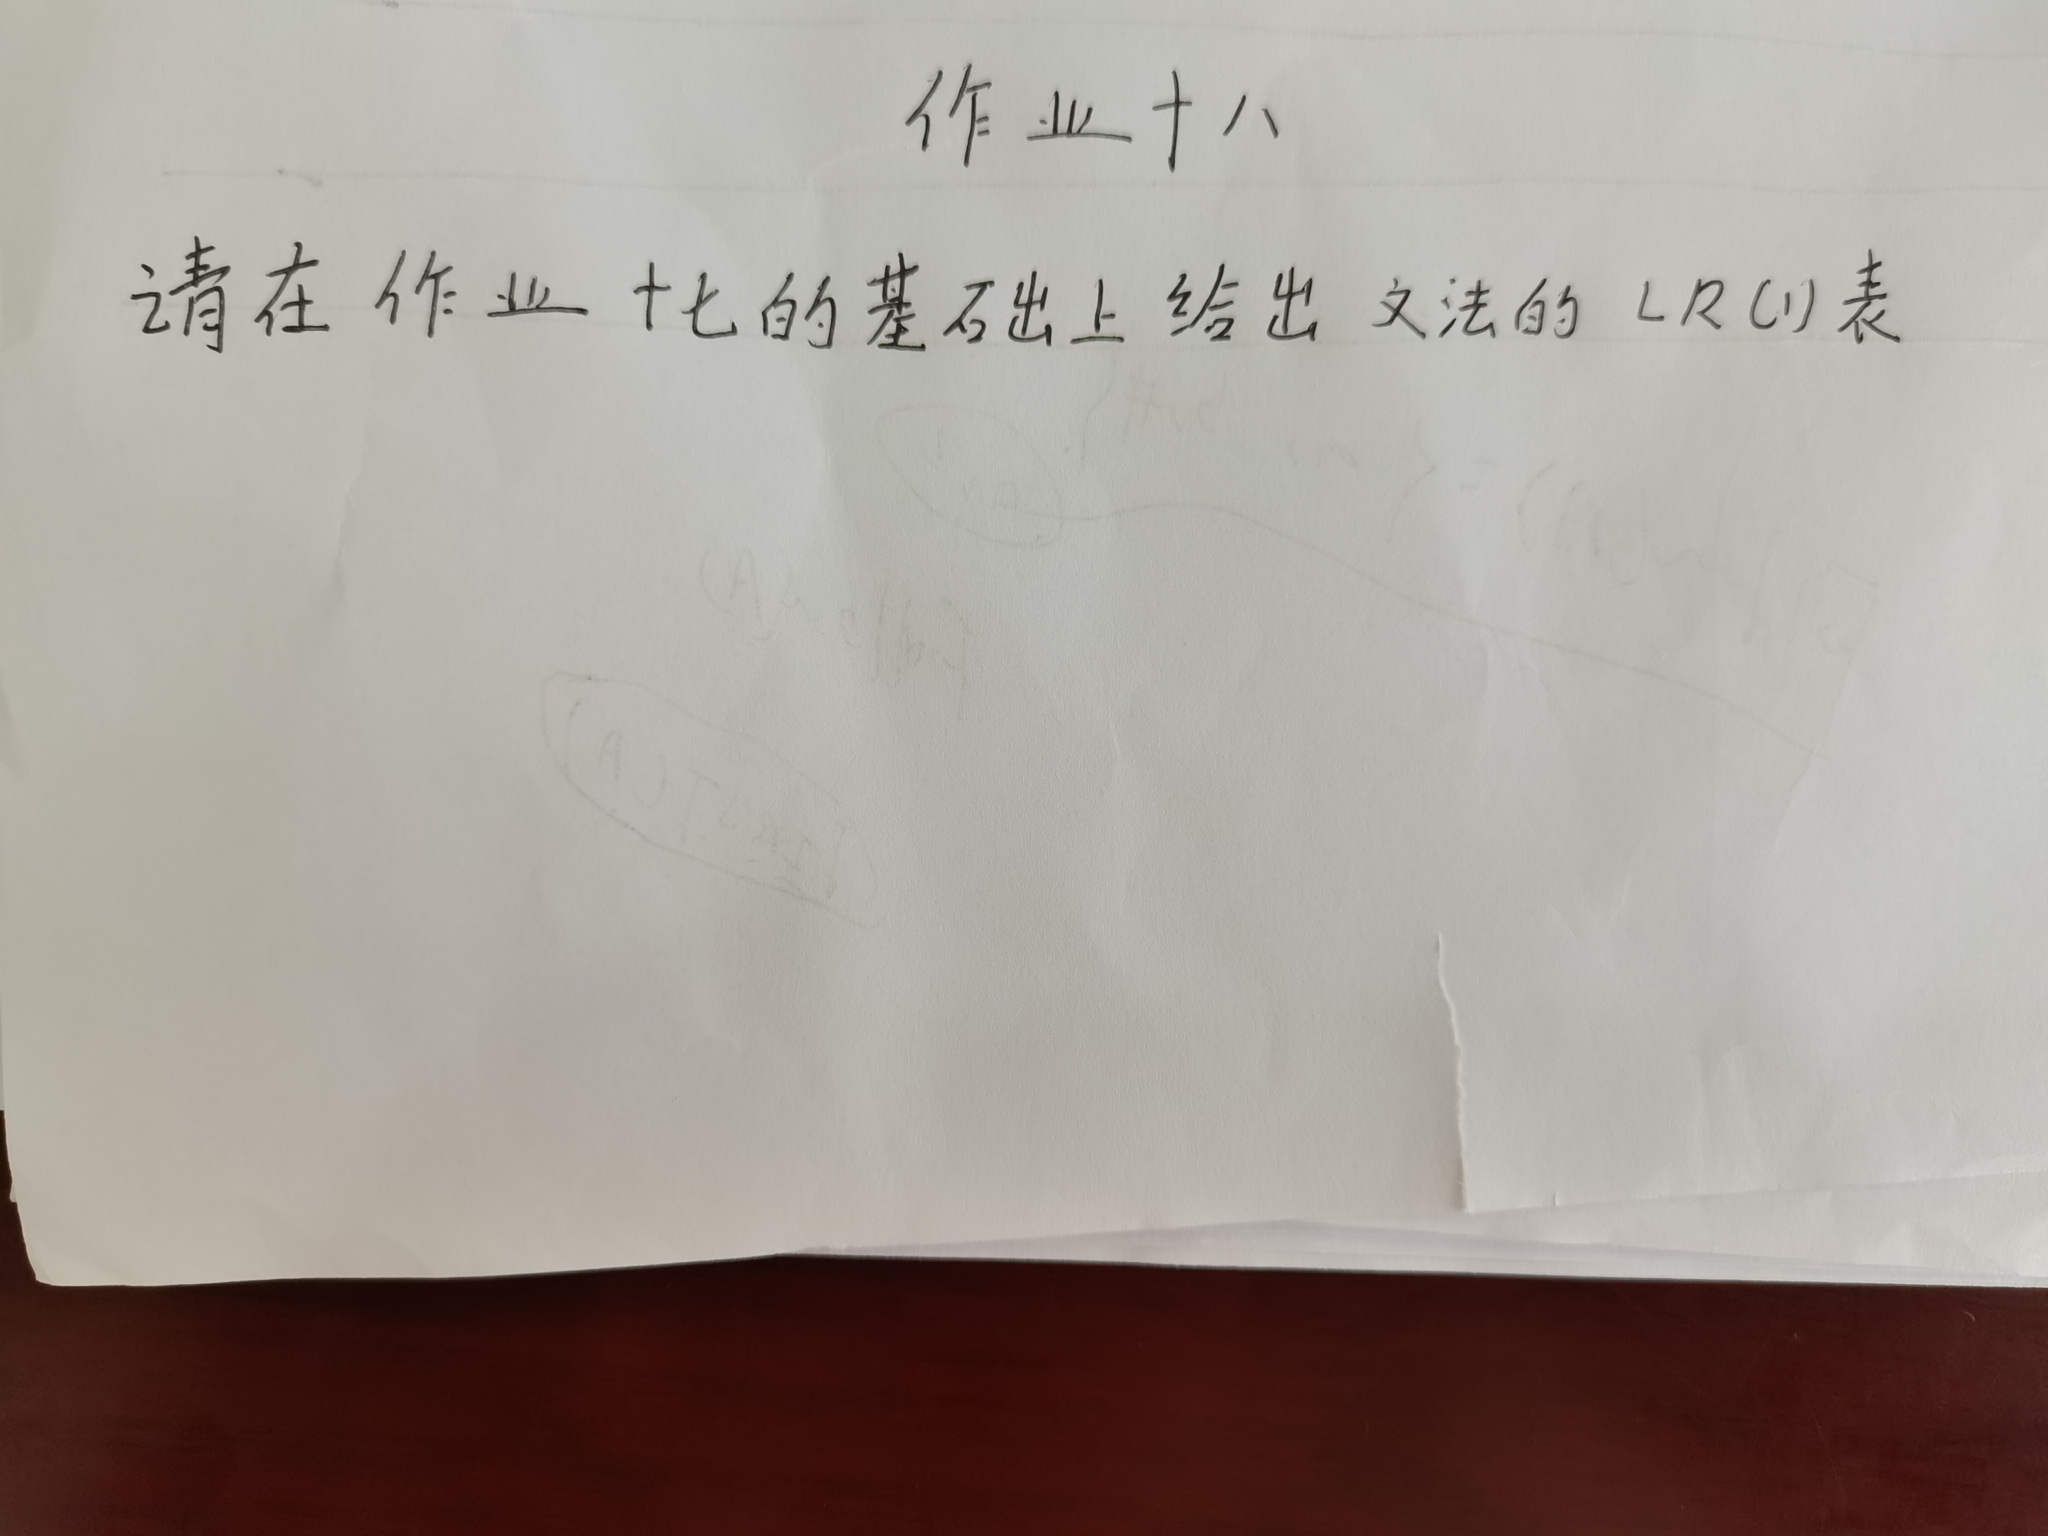 作业十八
请在作业十七的基础上给出文法的LR(1)表